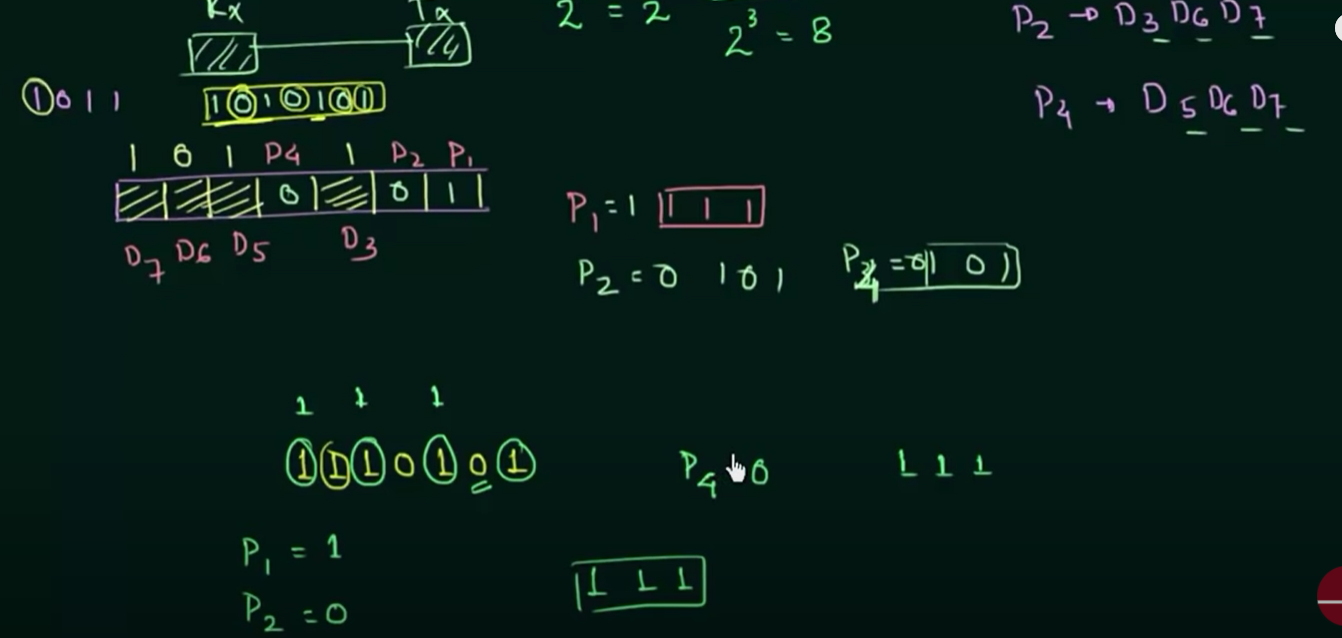 Rx Tx
2 = 2 2³ = 8
P2 → D3 D6 D7
① 0 1 1
1 0 1 0 1 0 1
P4 → D5 D6 D7
1 0 1 P4 1 P2 P1
0 0 1
D7 D6 D5 D3
P1 = 1 1 1 1
P2 = 0 1 0 1
P4 = 0 1 0 1
1 1 1
1 1 1 0 1 0 1
P4 0
1 1 1
P1 = 1
P2 = 0
1 1 1